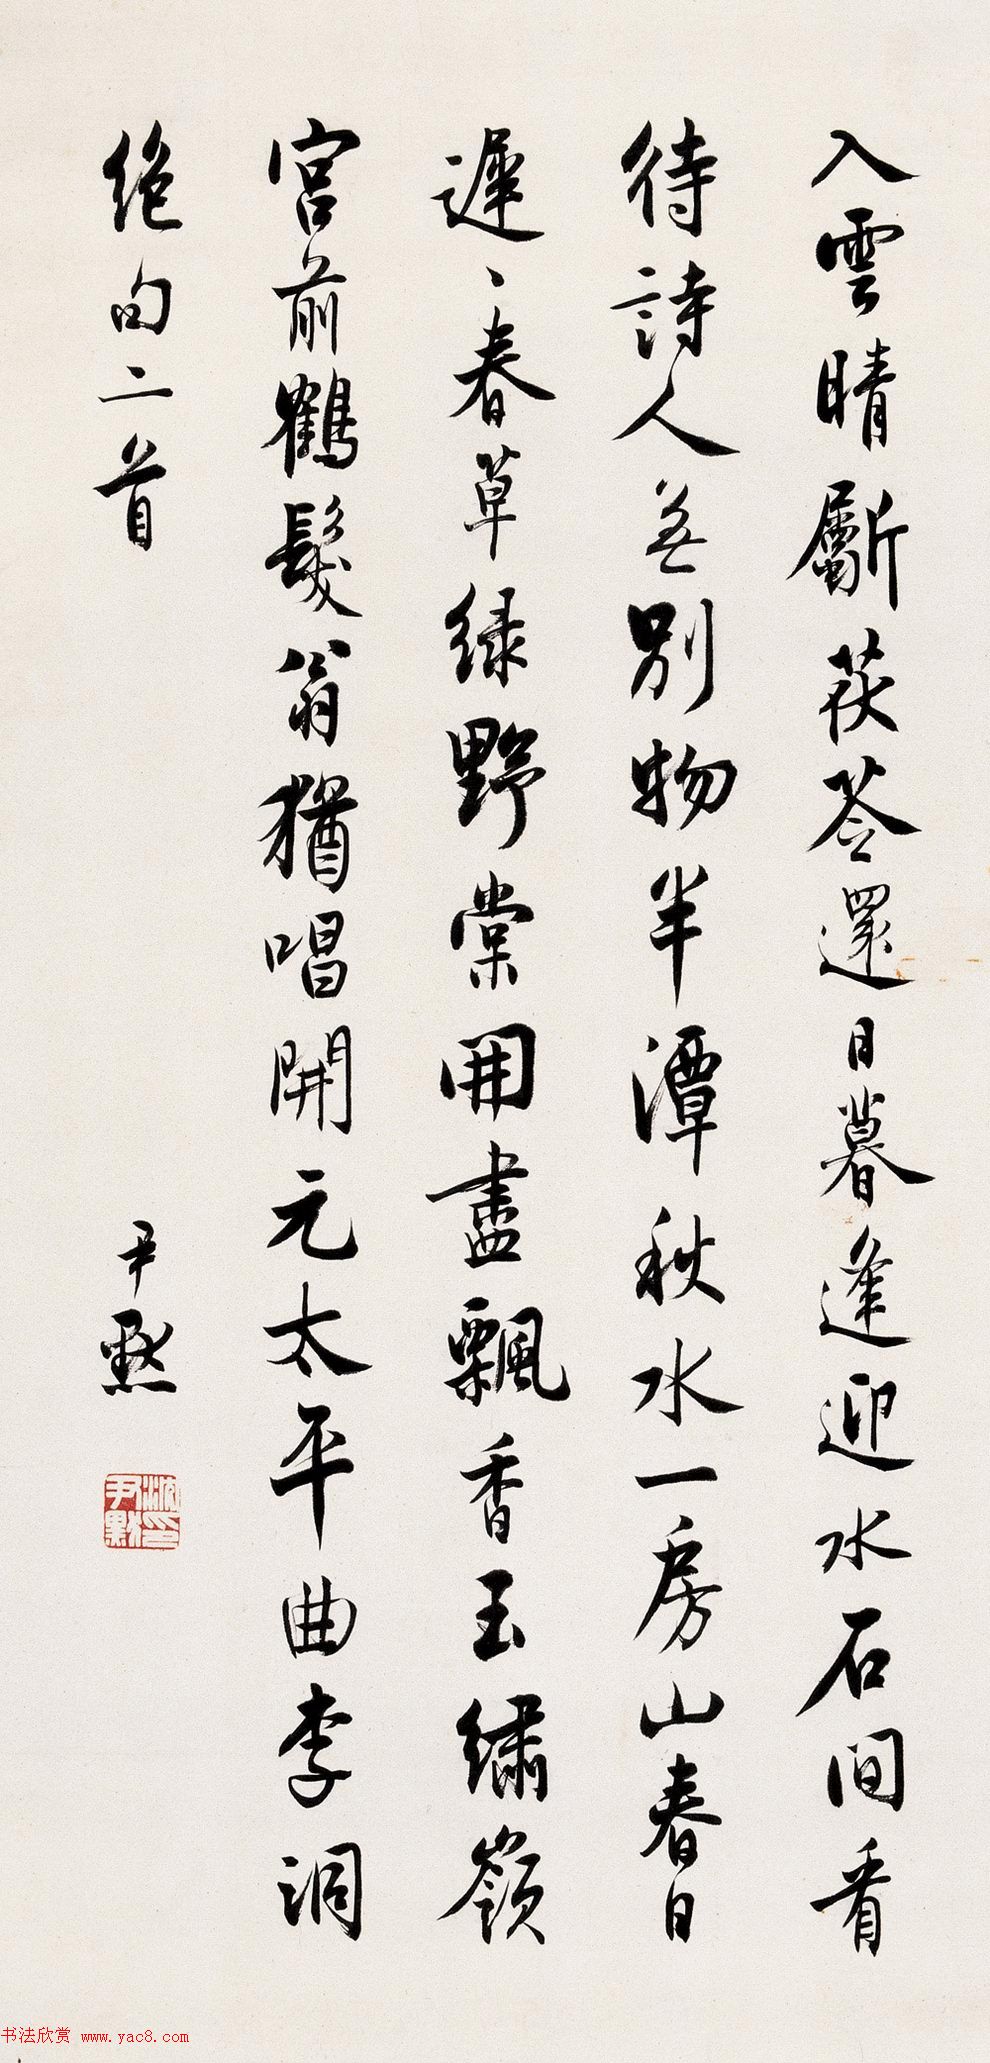 入雲晴斸茯苓還日暮逢迎水石間看
待詩人無別物半潭秋水一房山春日
遲、春草綠野棠開盡飄香玉繡嶺
宮前鶴髮翁猶唱開元太平曲李洞
絕句二首
尹默
沈尹默印
书法欣赏 www.yac8.com